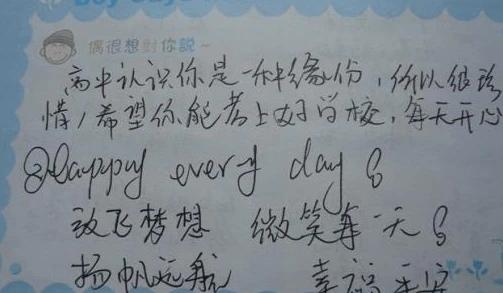 偶很想對你說～
高中认识你是一种缘份，所以很珍
惜，希望你能考上好学校，每天开心
Happy every day
放飞梦想 微笑每一天
扬帆远航 幸福平安